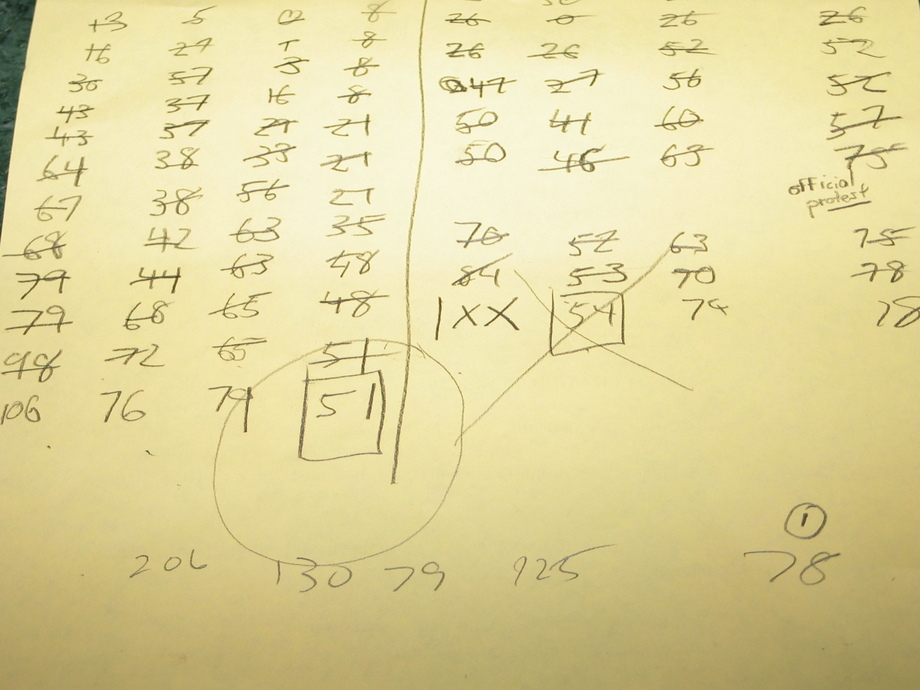 13 5 0 8 26 0 26 26
16 29 1 8 26 26 52 52
30 57 3 8 47 27 56 52
43 37 16 8 50 41 60 57
43 37 29 21 50 46 63 75
64 38 38 21
official
protest
67 38 56 21
68 42 63 35 76 52 63 75
79 44 63 48 84 53 70 78
79 68 65 48 1XX 54 78
98 72 65 51
106 76 79 51
1
206 130 79 125 78